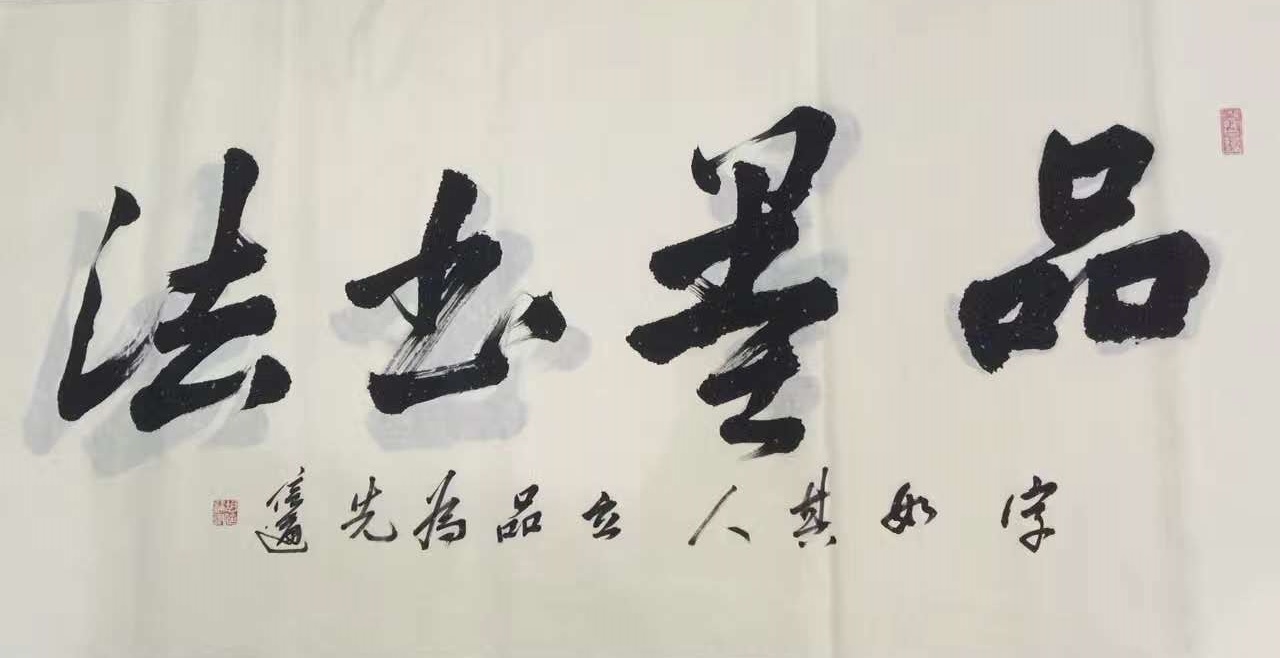 品墨书法
字如其人立品為先